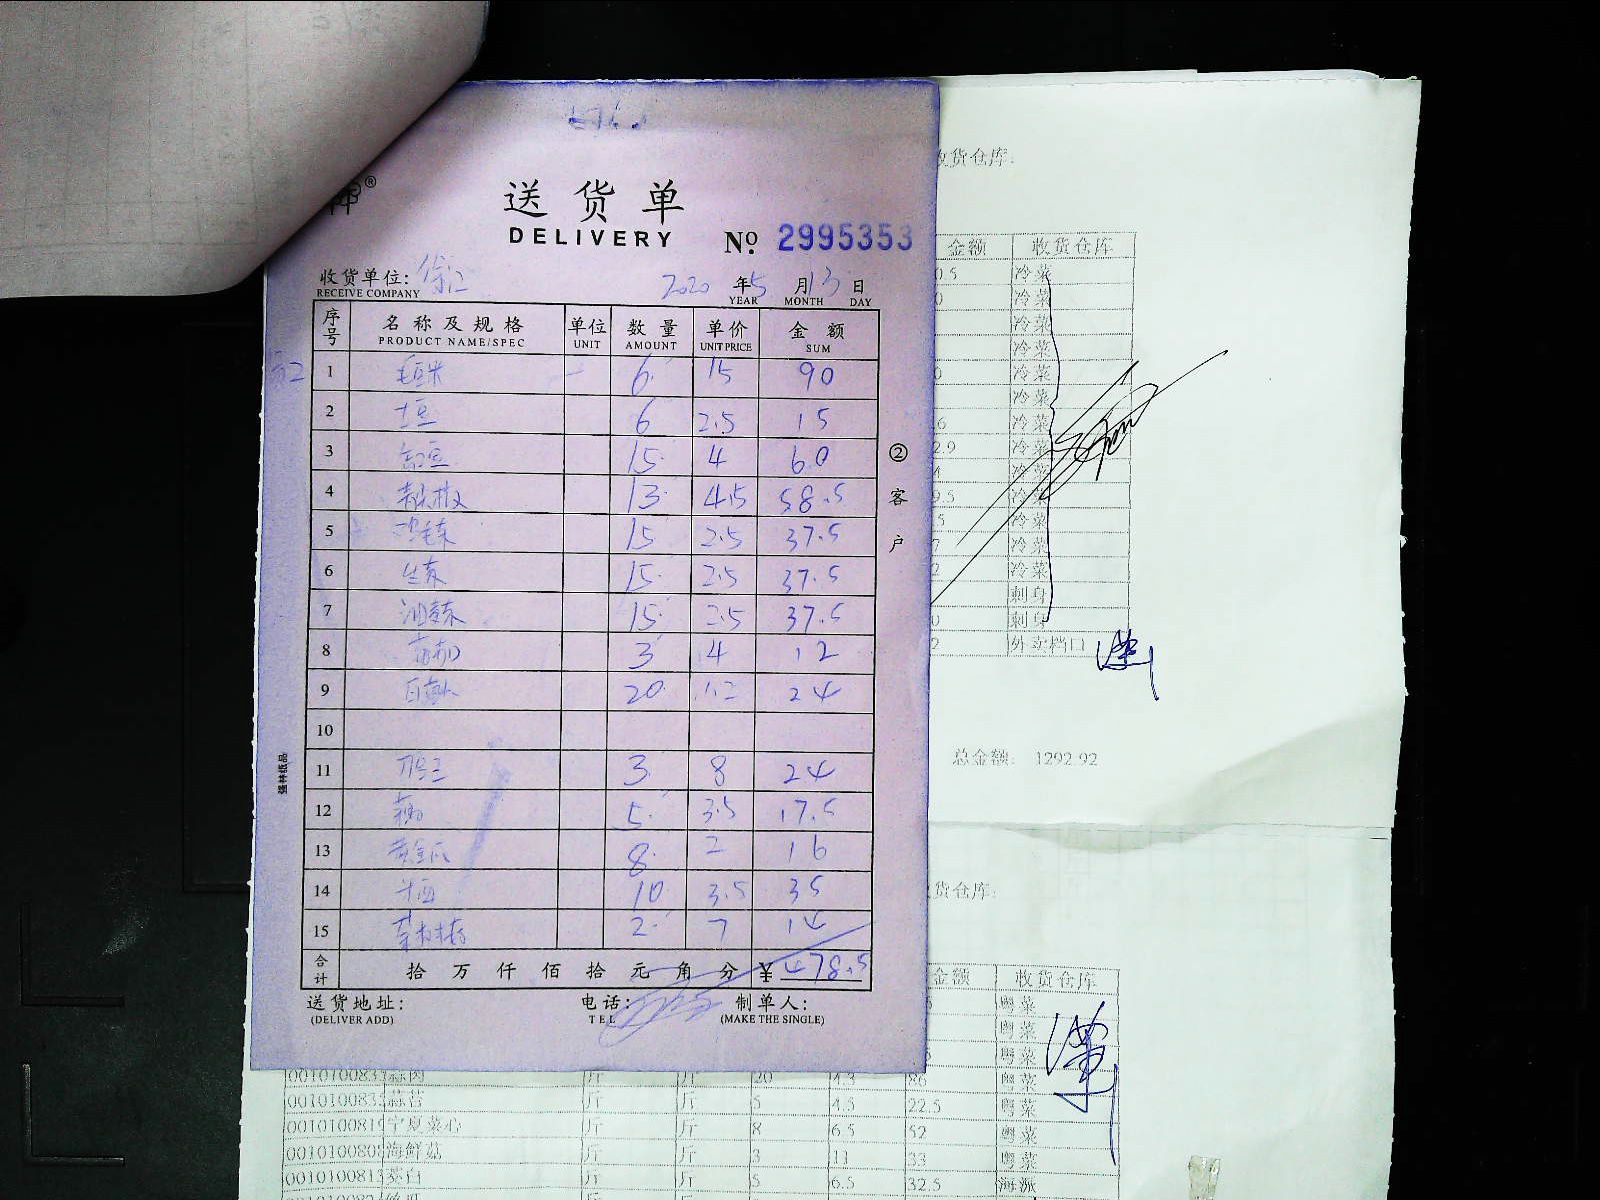 送货单
DELIVERY
№ 2995353
收货单位: 徐汇 2020 年 5 月 13 日
RECEIVE COMPANY YEAR MONTH DAY
序号 名称及规格 单位 数量 单价 金额
PRODUCT NAME/SPEC UNIT AMOUNT UNIT PRICE SUM
1 毛豆米 6 15 90
2 土豆 6 2.5 15
3 15 4 60
4 13 4.5 58.5
5 鸡毛菜 15 2.5 37.5
6 生菜 15 2.5 37.5
7 油麦菜 15 2.5 37.5
8 3 4 12
9 20 1.2 24
10
11 3 8 24
12 5 3.5 17.5
13 黄金瓜 8 2 16
14 10 3.5 35
15 2 7 14
合计 拾 万 仟 佰 拾 元 角 分 ¥ 478.5
送货地址: 电话: 制单人:
(DELIVER ADD) TEL (MAKE THE SINGLE)
②客户
强林纸品
收货仓库:
金额 收货仓库
0.5 冷菜
0 冷菜
冷菜
冷菜
冷菜
冷菜
6 冷菜
2.9 冷菜
冷菜
9.5 冷菜
5 冷菜
冷菜
2 冷菜
刺身
0 刺身
2 外卖档口
总金额: 1292.92
货仓库:
金额 收货仓库
粤菜
粤菜
粤菜
001010083 蒜肉 斤 斤 20 4.3 86 粤菜
001010083 蒜苔 斤 斤 5 4.5 22.5 粤菜
001010081 宁夏菜心 斤 斤 8 6.5 52 粤菜
001010080 海鲜菇 斤 斤 3 11 33 粤菜
001010081 茭白 斤 斤 5 6.5 32.5 海派